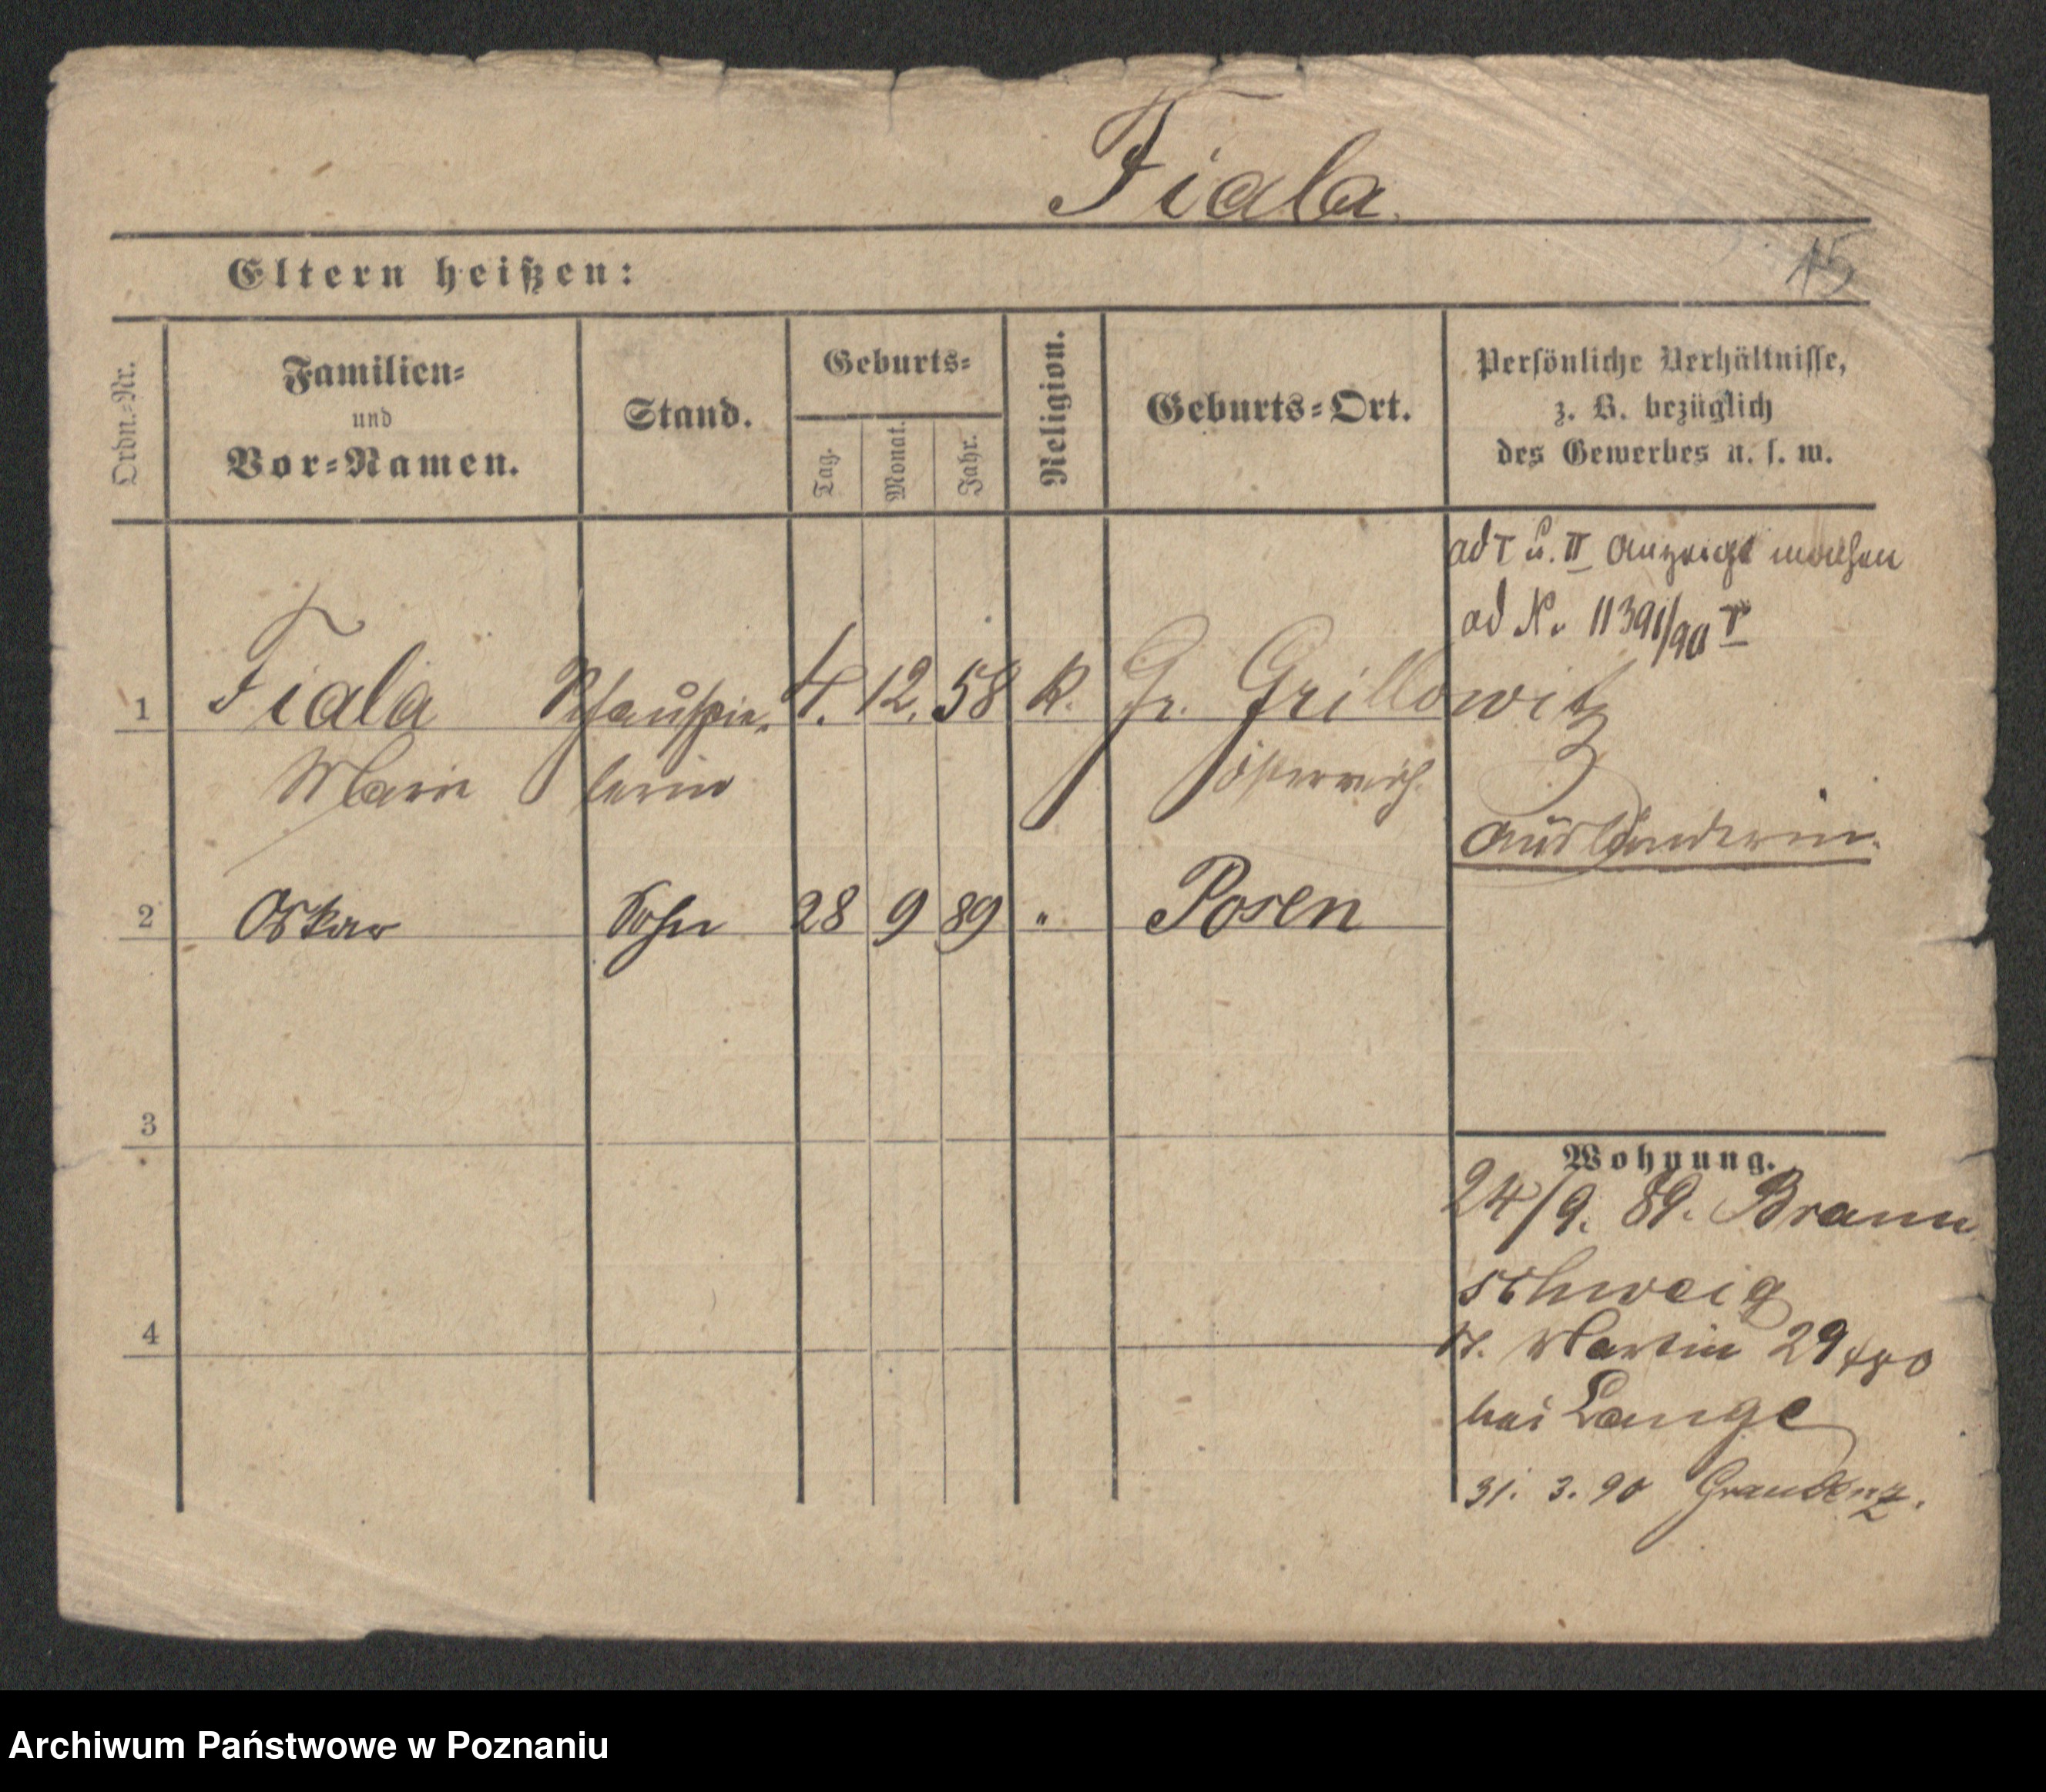 Fiala.
15
Eltern heißen:
Ordn.-Nr.
Familien-
und
Vor-Namen.
Stand.
Geburts-
Tag.
Monat.
Jahr.
Religion.
Geburts-Ort.
Persönliche Verhältnisse,
z. B. bezüglich
des Gewerbes u. s. w.
ad I u. II Anzeige machen
ad N. 11391/90 I
1 Fiala Schauspie- 4. 12. 58 k. Gr. Grillowitz
Marie lerin Österreich.
Ausländerin.
2 Oskar Sohn 28 9 89 " Posen
3
Wohnung.
24/9. 89. Braun
schweig
4
St. Martin 29
bei Lange
31. 3. 90 Graudenz.
Archiwum Państwowe w Poznaniu